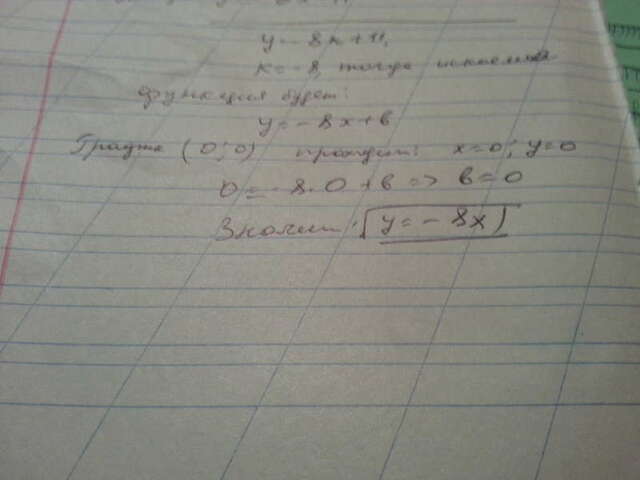 y=-8x+11,
k=-8, тогда искомая
функция будет:
y=-8x+b
График (0;0) проходит: x=0; y=0
0=-8·0+b => b=0
Значит: y=-8x